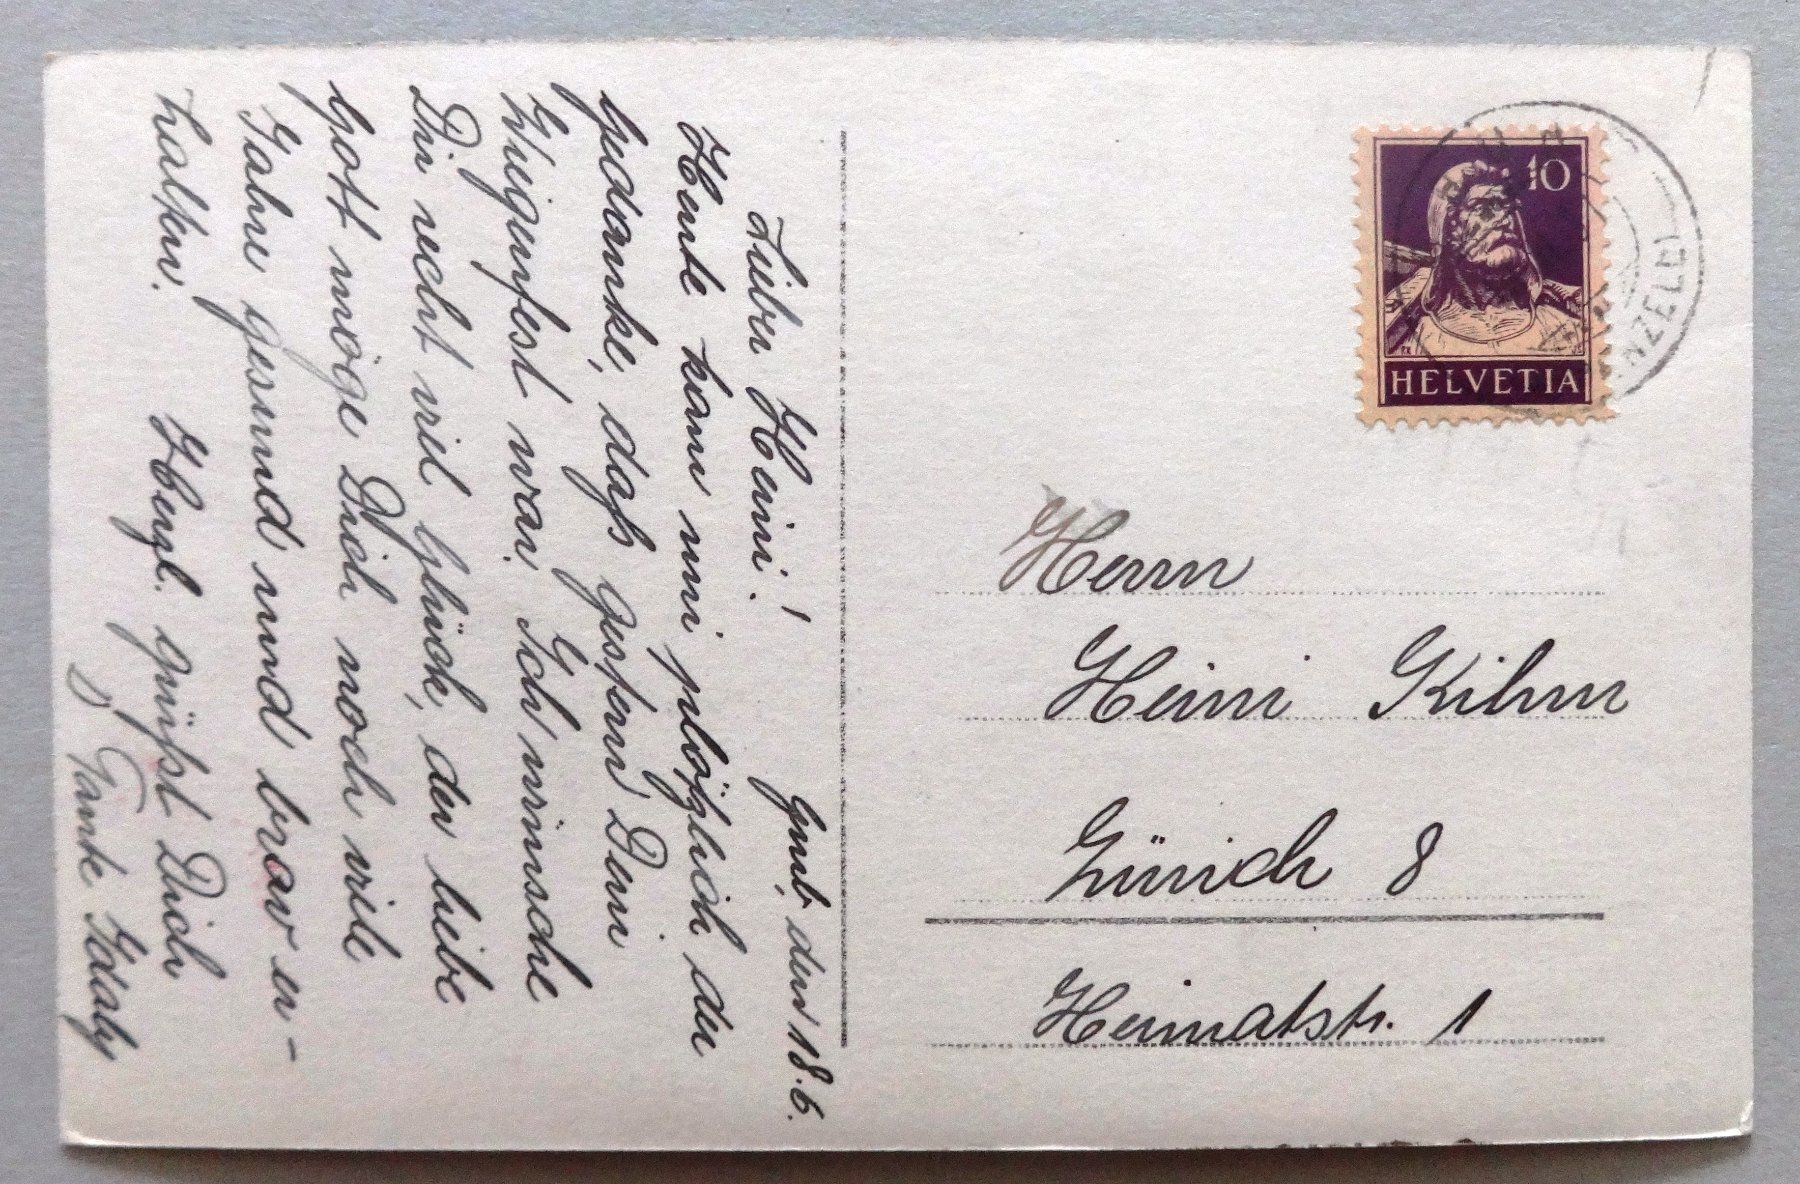 Grub, den 18.6.
Lieber Heini!
Heute kam mir plötzlich der
Gedanke, dass gestern Dein
Wiegenfest war. Ich wünsche
Dir recht viel Glück, der liebe
Gott möge Dich noch viele
Jahre gesund und brav er-
halten. Herzl. grüsst Dich
D. Tante
10
HELVETIA
NZELL
Herrn
Heini Kihm
Zürich 8
Heimatstr. 1